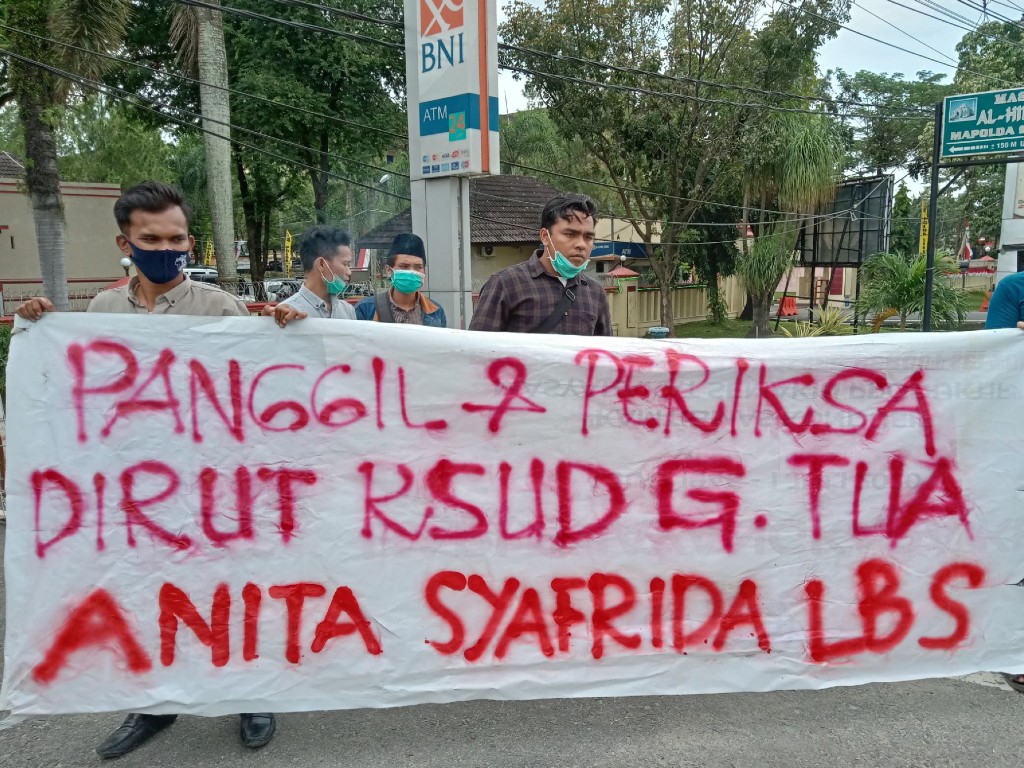 BNI
ATM
MAS
AL-HI
MAPOLDA
± 150 M
PANGGIL & PERIKSA
DIRUT KSUD G. TUA
ANITA SYAFRIDA LBS